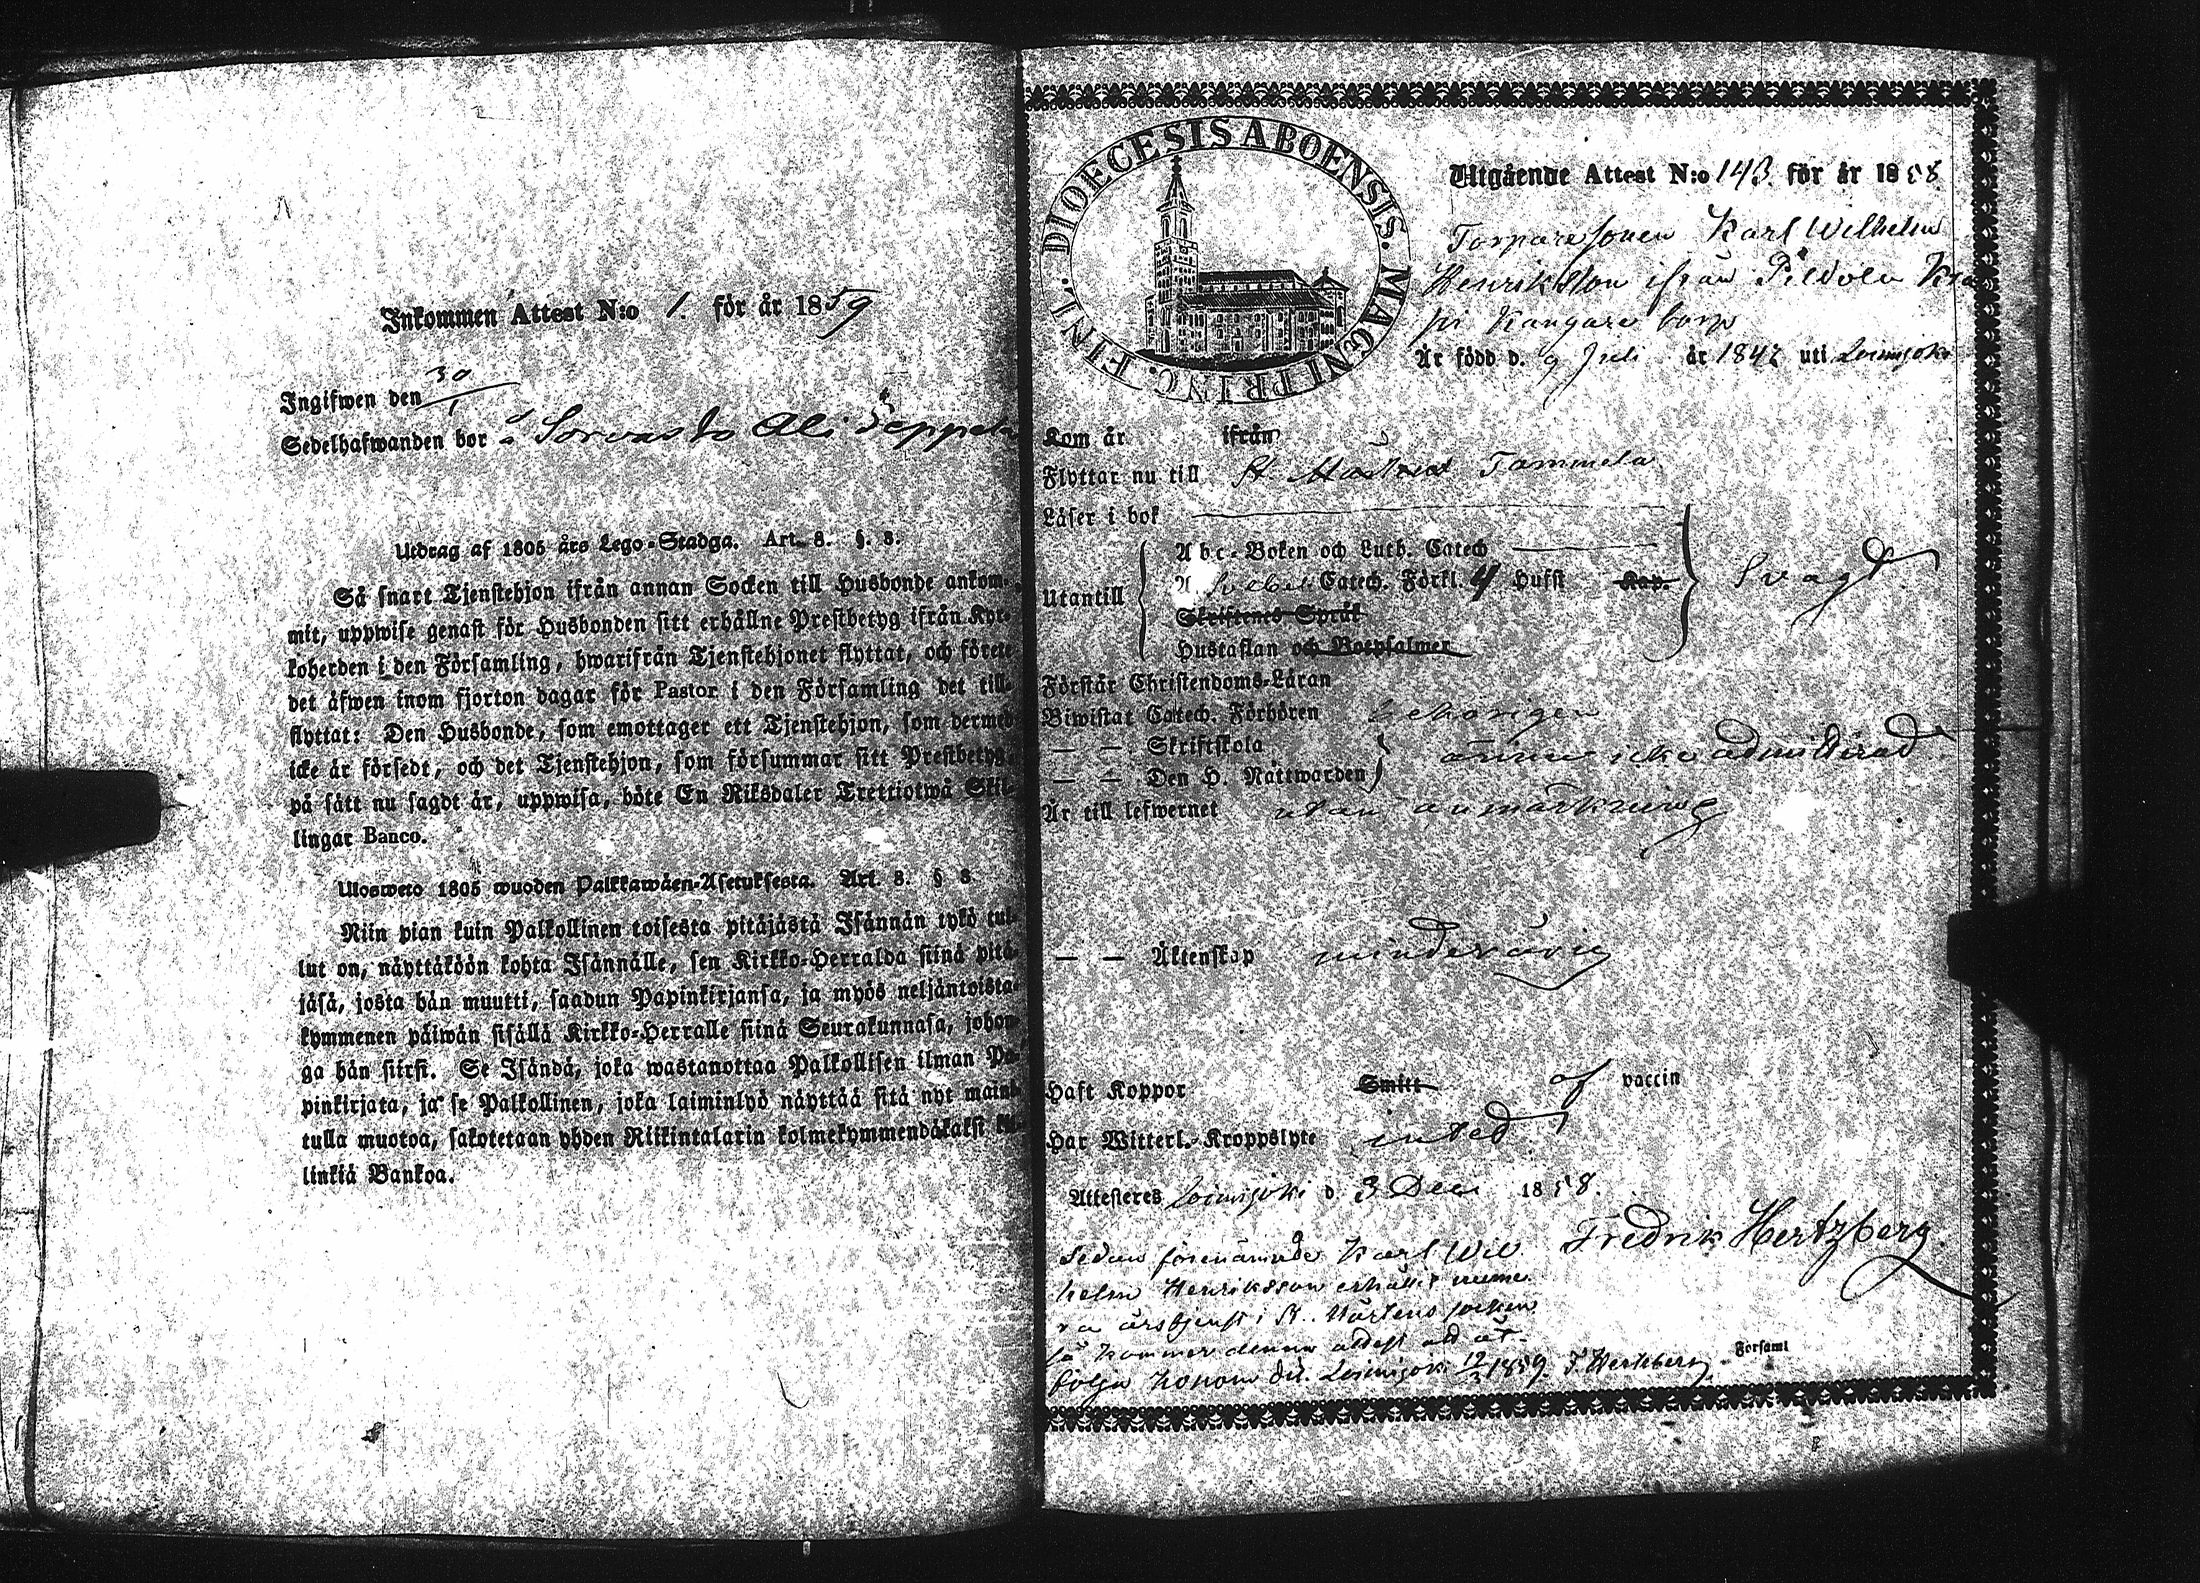 Inkommen Attest N:o 1. för år 1859
Ingifwen den 30/1
Sedelhafwanden bor å Sorvasto Ali Seppälä
Utdrag af 1805 års Lego-Stadga. Art. 8. §. 8.
Så snart Tjenstehjon ifrån annan Socken till Husbonde ankom-
mit, uppwise genast för Husbonden sitt erhållne Prestbetyg ifrån Kyr-
koherden i den Församling, hwarifrån Tjenstehjonet flyttat, och förete
det äfwen inom fjorton dagar för Pastor i den Församling det till-
flyttat: Den Husbonde, som emottager ett Tjenstehjon, som dermed
icke är försedt, och det Tjenstehjon, som försummar sitt Prestbetyg,
på sätt nu sagdt är, uppwisa, böte En Riksdaler Trettiotwå Skil-
lingar Banco.
Ulosweto 1805 wuoden Palkkawäen-Asetuksesta. Art. 8. § 8
Niin pian kuin Palkollinen toisesta pitäjästä Isännän tykö tul-
lut on, näyttäköön kohta Isännälle, sen Kirkko-Herralda siinä pitä-
jäsä, josta hän muutti, saadun Papinkirjansa, ja myös neljäntoista-
kymmenen päiwän sisällä Kirkko-Herralle siinä Seurakunnasa, johon-
ga hän siirsi. Se Isändä, joka wastanottaa Palkollisen ilman Pa-
pinkirjata, ja se Palkollinen, joka laiminlyö näyttää sitä nyt mainit-
tulla muotoa, sakotetaan yhden Riikintalarin kolmekymmendäkaksi kil-
linkiä Bankoa.
DIOECESIS ABOENSIS. MAGNI PRINC. FINL.
Utgående Attest N:o 143. för år 1858.
Torparesonen Karl Wilhelm
Henriksson ifrån Pildola
Kangare torp
Är född d. 9 Juli år 1842 uti Loimijoki
Kom år ifrån
Flyttar nu till St. Mårtens Tammela
Läser i bok
Utantill
Abc-Boken och Luth. Catech
Svebeli Catech. Förkl. 4 Hufst Kap.
Svagt
Skriftenes Språk
Hustaflan och Botpsalmer
Förstår Christendoms-Läran
Biwistat Catech. Förhören behörigen
— — Skriftskola
ännu icke admitterad
— — Den H. Nattwarden
Är till lefwernet utan anmärkning
— — Äktenskap minderårig
Haft Koppor Smitt af vaccin
Har Witterl. Kroppslyte intet
Attesteres Loimijoki d. 3 Dec. 1858.
Fredrik Hertzberg.
Sedan förenämnde Karl Wil
helm Henriksson erhållit numе
ra årstjenst i St. Mårtens socken
så kommer denna attest att åt-
följa honom dit. Loimijoki 12/1 1859. F. Hertzberg.
Forsaml